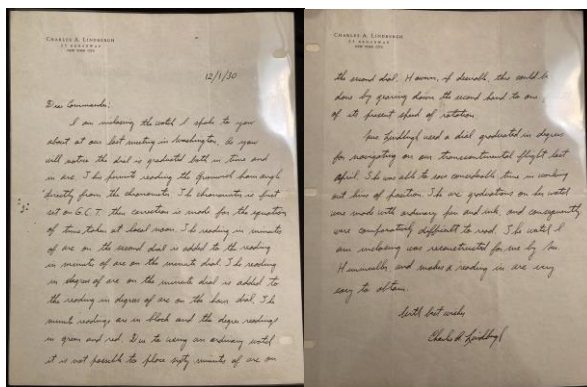 CHARLES A. LINDBERGH
25 BROADWAY
NEW YORK CITY
12/1/30
Dear Commander:
I am inclosing the watch I spoke to you
about at our last meeting in Washington. As you
will notice the dial is graduated both in time and
in arc. This permits reading the Greenwich hour angle
directly from the chronometer. The chronometer is first
set on G.C.T. Then correction is made for the equation
of time taken at local noon. The reading in minutes
of arc on the second dial is added to the reading
in minutes of arc on the minute dial. The reading
in degrees of arc on the minute dial is added to
the reading in degrees of arc on the hour dial. The
minute readings are in black and the degree readings
in green and red. Due to using an ordinary watch
it is not possible to place sixty minutes of arc on
CHARLES A. LINDBERGH
25 BROADWAY
NEW YORK CITY
the second dial. However, if desirable, this could be
done by gearing down the second hand to one
of its present speed of rotation
Mrs Lindbergh used a dial graduated in degrees
for navigating on our transcontinental flight last
April. She was able to save considerable time in working
out lines of position. The arc graduations on her watch
were made with ordinary pen and ink, and consequently
were comparatively difficult to read. The watch I
am inclosing was reconstructed for me by Mr
and makes a reading in arc very
easy to obtain.
With best wishes
Charles A. Lindbergh